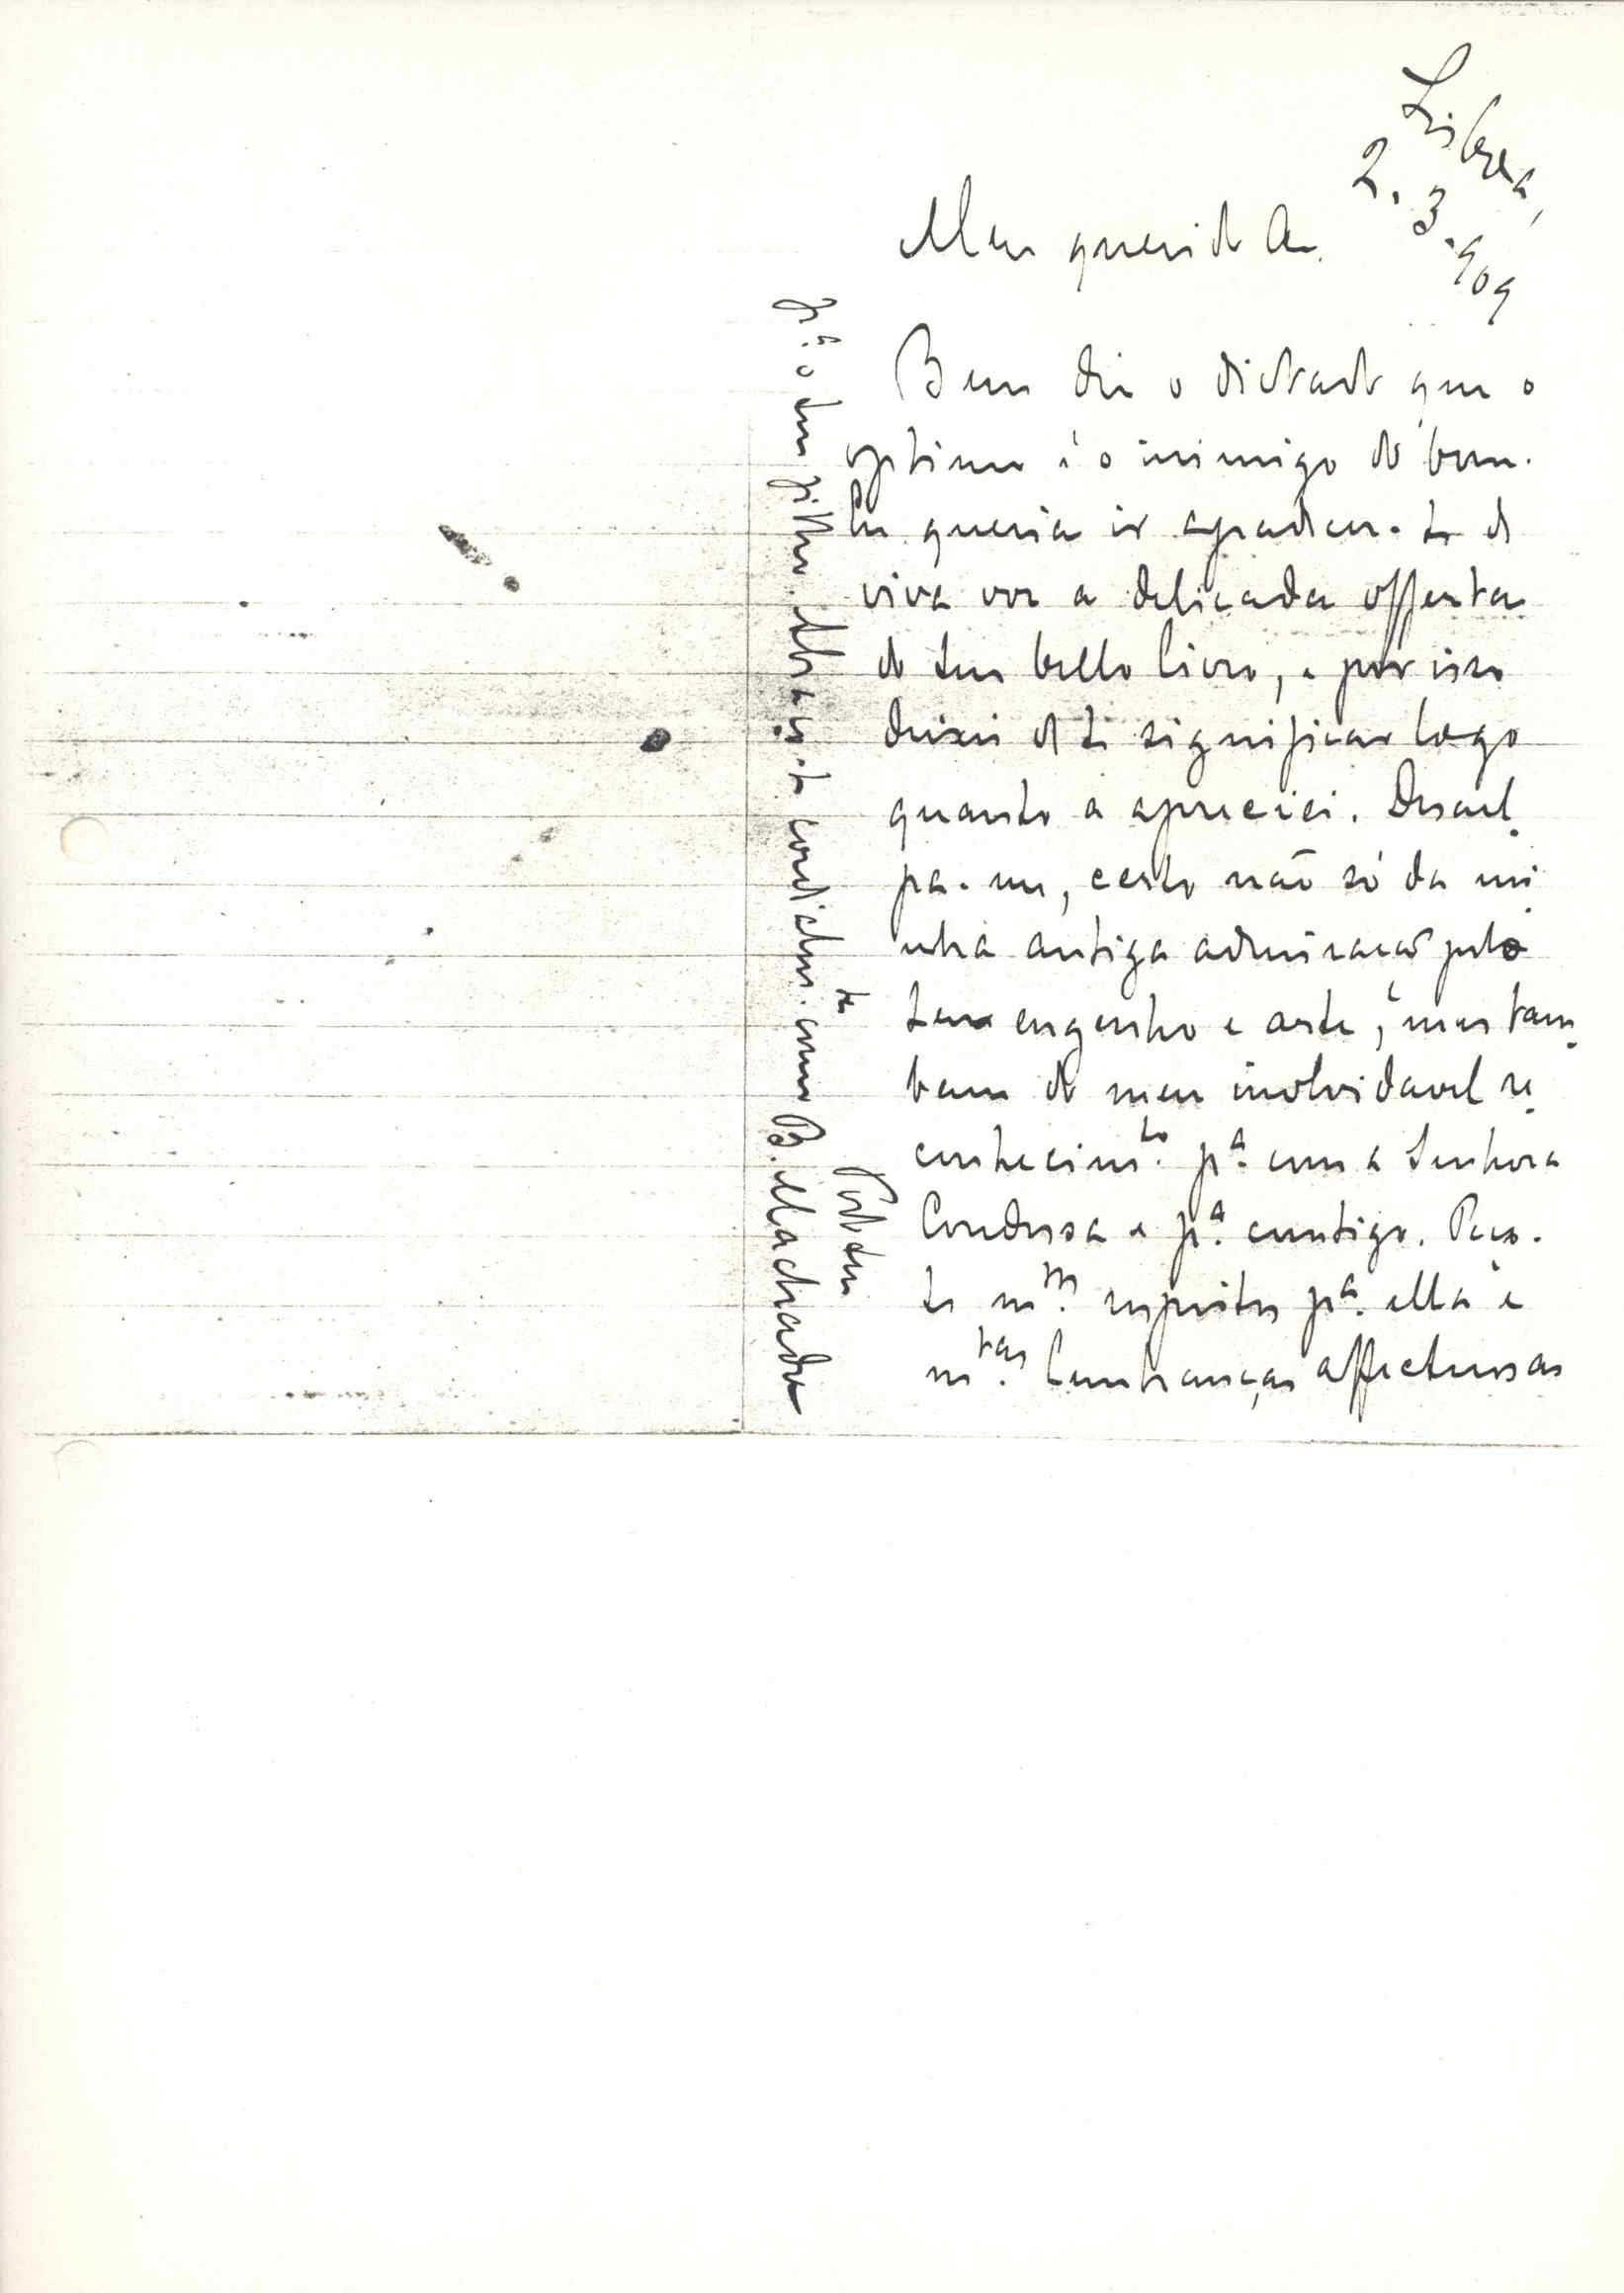 Lisboa,
2.3.909
Meu querido A.
Bem diz o dictado que o
optimo é o inimigo do bom.
Eu queria ir agradecer-te de
viva voz a delicada offerta
do teu bello livro, e por isso
deixei de te significar logo
quanto a apreciei. Descul-
pa-me, certo não só da mi-
nha antiga admiração pelo
teu engenho e arte, mas tam-
bem do meu inolvidavel re-
conhecimto. pa. com a Senhora
Condessa e pa. comtigo. Peço-
te ms. respeitos pa. ella e
mtas. lembranças affectuosas
pa. o teu filho. Abraça-te cordialmte. como
Todo teu
B. Machado